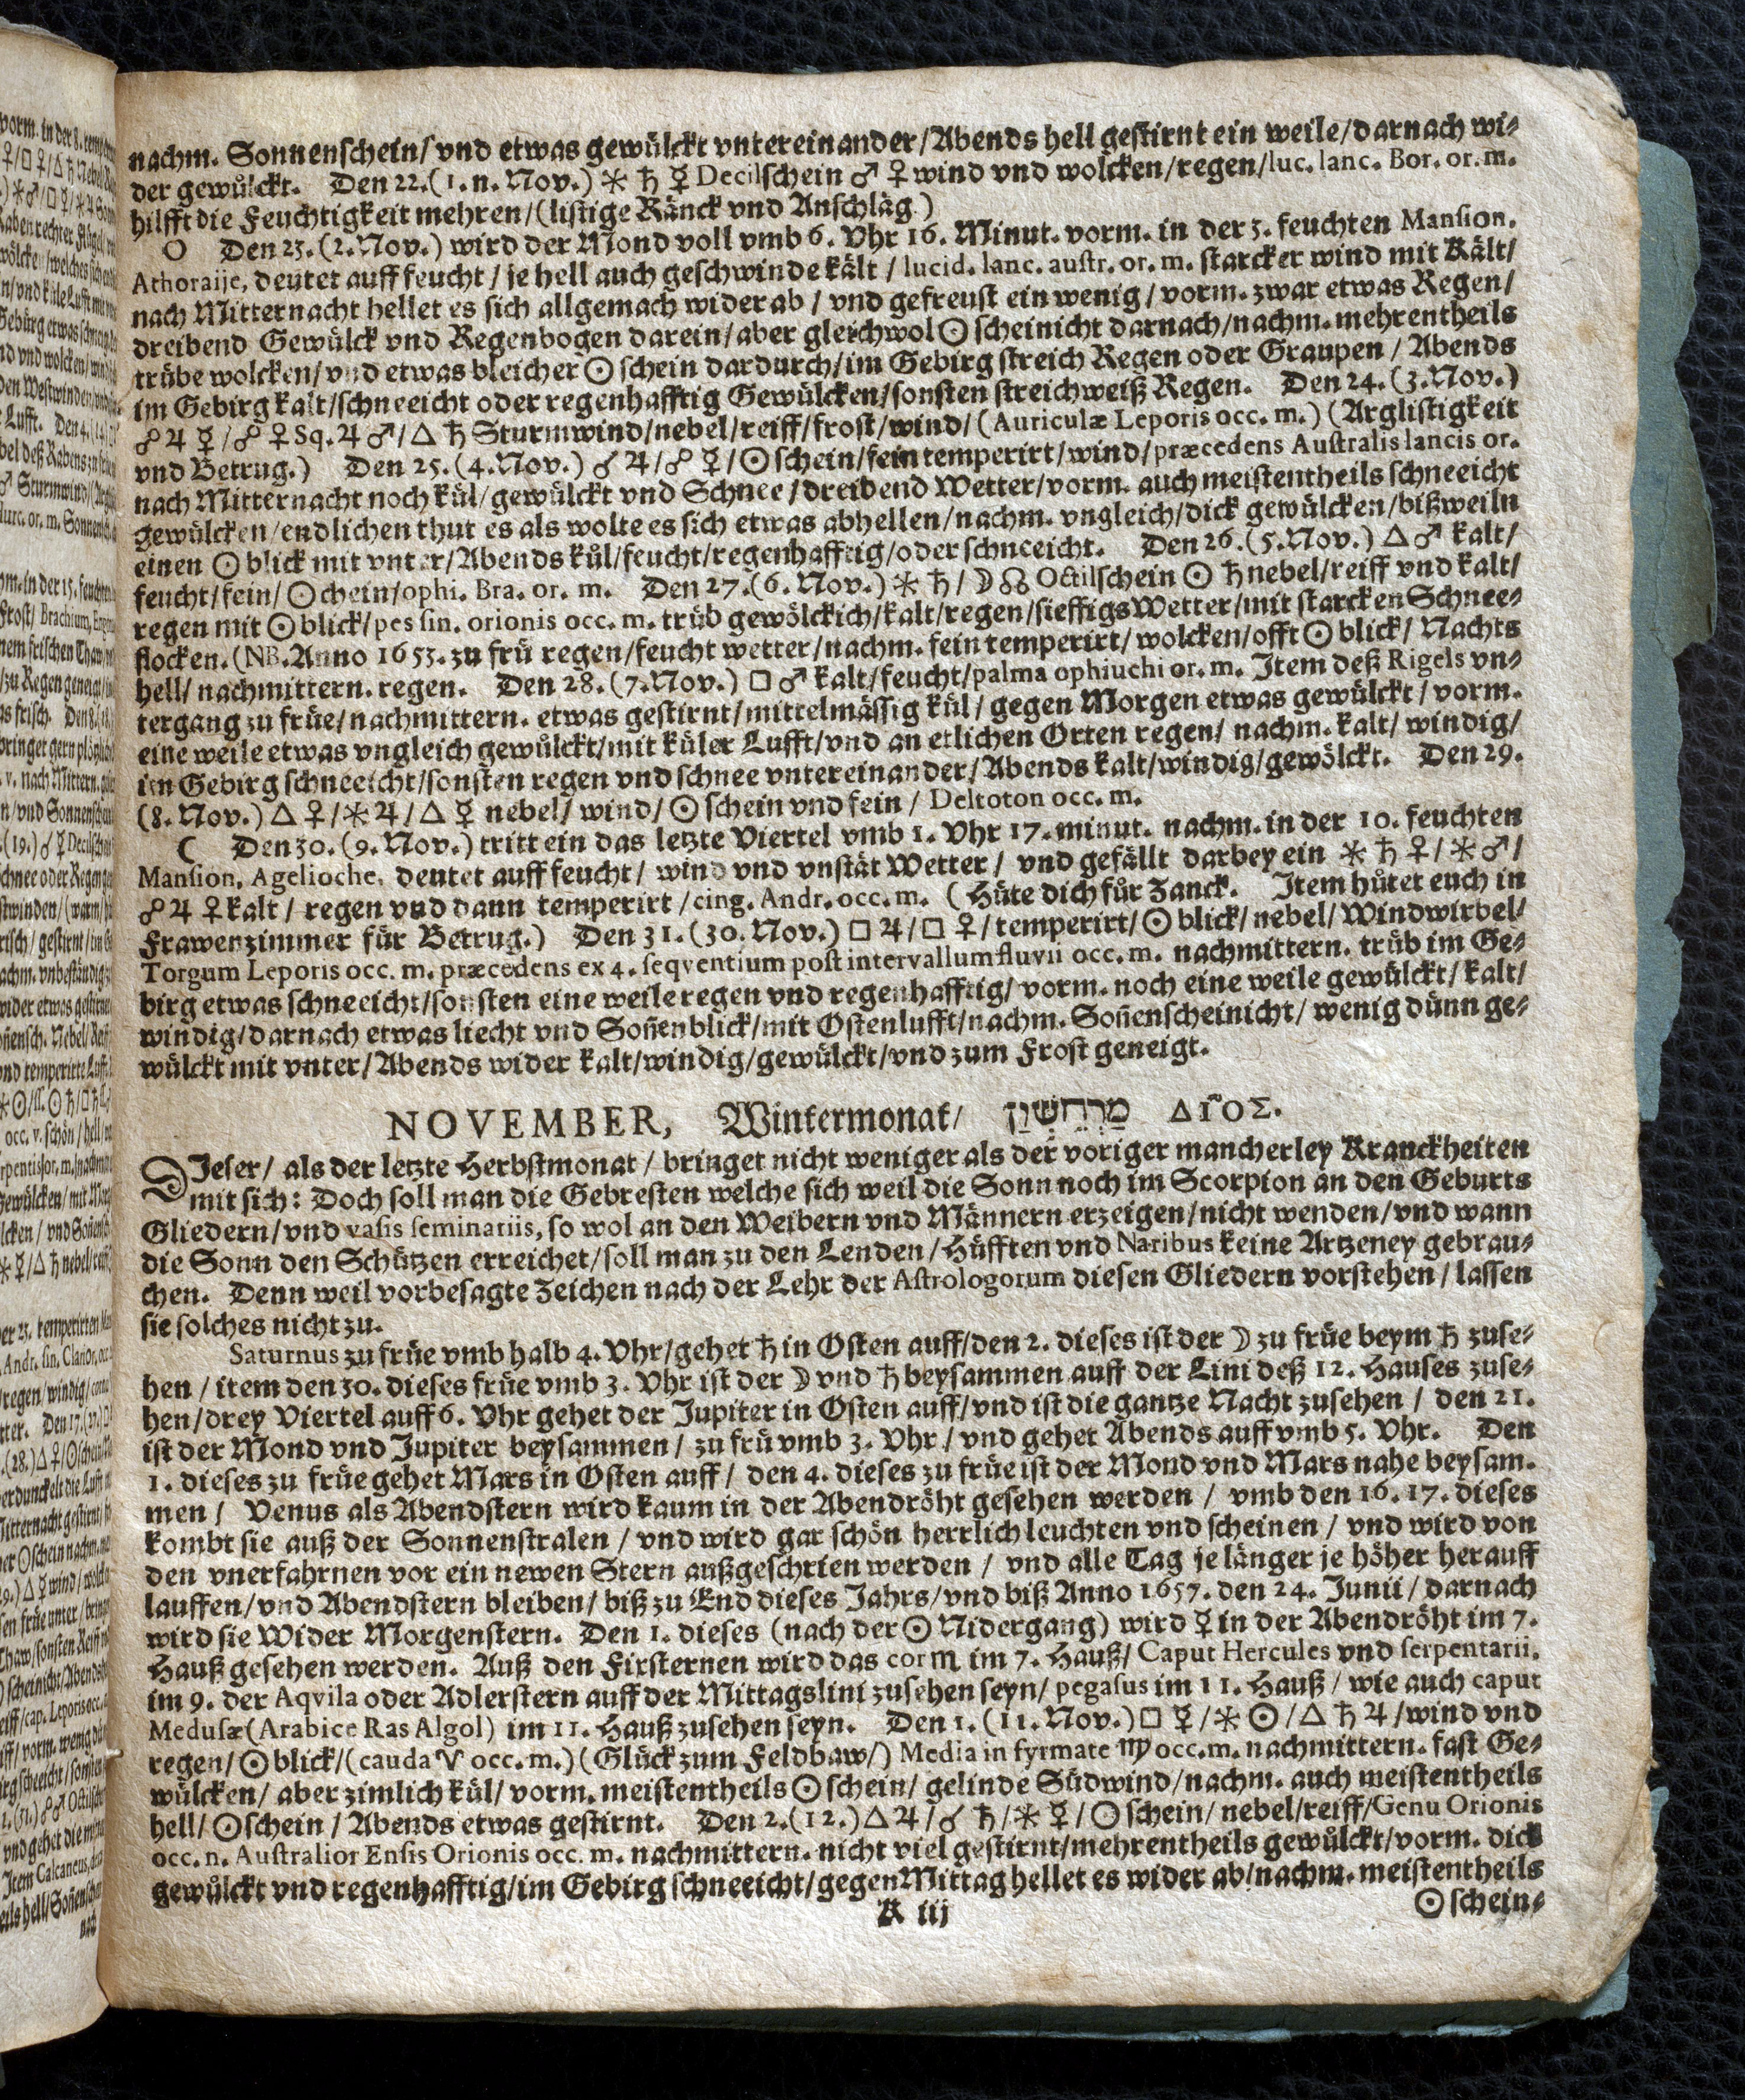 nachm. Sonnenschein/ vnd etwas gewülckt vntereinander/Abends hell gestirnt ein weile/darnach wi-
der gewůlckt. Den 22.(1.n.Nov.) ⚹ ♄ ☿ Decilschein ♂ ♀ wind vnd wolcken/regen/luc. lanc. Bor. or. m.
hilfft die Feuchtigkeit mehren/(listige Ränck vnd Anschläg.)
O Den 23.(2.Nov.) wird der Mond voll vmb 6. Vhr 16. Minut. vorm. in der 3. feuchten Mansion.
Athoraije, deutet auff feucht/ je hell auch geschwinde kält / lucid. lanc. austr. or. m. starcker wind mit Kält/
nach Mitternacht hellet es sich allgemach wider ab / vnd gefreust ein wenig / vorm. zwar etwas Regen/
dreibend Gewülck vnd Regenbogen darein/ aber gleichwol ☉ scheinicht darnach/nachm. mehrentheils
trübe wolcken/ vnd etwas bleicher ☉ schein dardurch/im Gebirg streich Regen oder Graupen / Abends
im Gebirg kalt/schneeicht oder regenhafftig Gewülcken/sonsten streichweiß Regen. Den 24.(3.Nov.)
☍ ♃ ☿ /☍ ♀ Sq. ♃ ♂/ △ ♄ Sturmwind/nebel/reiff/frost/wind/ (Auriculæ Leporis occ. m.) (Arglistigkeit
vnd Betrug.) Den 25.(4.Nov.) ☌ ♃/☍ ☿ /☉schein/fein temperirt/wind/præcedens Australis lancis or.
nach Mitternacht noch kül/gewülckt vnd Schnee/dreibend Wetter/vorm. auch meistentheils schneeicht
gewülcken/endlichen thut es als wolte es sich etwas abhellen/nachm. vngleich/dick gewülcken/bißweiln
einen ☉ blick mit vnter/Abends kůl/feucht/regenhafftig/oder schneeicht. Den 26.(5.Nov.) △ ♂ kalt/
feucht/fein/ ☉chein/ophi. Bra. or. m. Den 27.(6. Nov.) ⚹ ♄/ ☽ ☊ Octilschein ☉ ♄ nebel/reiff vnd kalt/
regen mit ☉ blick/pes sin. orionis occ. m. trüb gewölckich/kalt/regen/sieffigs Wetter/mit starcken Schnee-
flocken.(NB.Anno 1653. zu frü regen/feucht wetter/nachm. fein temperirt/ wolcken/offt ☉ blick/ Nachts
hell/ nachmittern. regen. Den 28.(7.Nov.) □ ♂ kalt/feucht/palma ophiuchi or. m. Item deß Rigels vn-
tergang zu früe/nachmittern. etwas gestirnt/mittelmässig kül/ gegen Morgen etwas gewülckt/ vorm.
eine weile etwas vngleich gewůlckt/mit küler Lufft/vnd an etlichen Orten regen/ nachm. kalt/ windig/
im Gebirg schneeicht/sonsten regen vnd schnee vntereinander/Abends kalt/windig/gewölckt. Den 29.
(8. Nov.) △ ♀/⚹ ♃/ △ ☿ nebel/ wind/ ☉ schein vnd fein / Deltoton occ. m.
☾ Den 30.(9. Nov.) tritt ein das letzte Viertel vmb 1. Vhr 17. minut. nachm. in der 10. feuchten
Mansion, Agelioche, deutet auff feucht/ wind vnd vnstät Wetter / vnd gefällt darbey ein ⚹ ♄ ♀/ ⚹ ♂/
☍ ♃ ♀ kalt / regen vnd dann temperirt /cing. Andr. occ. m. ( Hüte dich für Zanck. Item hůtet euch in
Frawenzimmer für Betrug.) Den 31.(30. Nov.) □ ♃/ □ ♀/temperirt/☉ blick/nebel/Windwirbel/
Torgum Leporis occ. m. præcedens ex 4. seqventium post intervallum fluvii occ. m. nachmittern. trüb im Ge-
birg etwas schneeicht/sonsten eine weile regen vnd regenhafftig/ vorm. noch eine weile gewülckt/ kalt/
windig/darnach etwas liecht vnd Soñenblick/mit Ostenlufft/nachm. Soñenscheinicht/ wenig dünn ge-
wülckt mit vnter/Abends wider kalt/windig/gewülckt/vnd zum Frost geneigt.
NOVEMBER, Wintermonat/ מַרְחֶשְׁוָן ΔΙΟΣ.
DIeser/ als der letzte Herbstmonat / bringet nicht weniger als der voriger mancherley Kranckheiten
mit sich: Doch soll man die Gebresten welche sich weil die Sonn noch im Scorpion an den Geburts
Gliedern/vnd vasis seminariis, so wol an den Weibern vnd Männern erzeigen/nicht wenden/vnd wann
die Sonn den Schützen erreichet/soll man zu den Lenden / Hüfften vnd Naribus keine Artzeney gebrau-
chen. Denn weil vorbesagte Zeichen nach der Lehr der Astrologorum diesen Gliedern vorstehen / lassen
sie solches nicht zu.
Saturnus zu früe vmb halb 4. Vhr/gehet ♄ in Osten auff/den 2. dieses ist der ☽ zu früe beym ♄ zuse-
hen / item den 30. dieses früe vmb 3. Vhr ist der ☽ vnd ♄ beysammen auff der Lini deß 12. Hauses zuse-
hen/drey Viertel auff 6. Vhr gehet der Jupiter in Osten auff/vnd ist die gantze Nacht zusehen / den 21.
ist der Mond vnd Jupiter beysammen / zu frü vmb 3. Vhr / vnd gehet Abends auff vmb 5. Vhr. Den
1. dieses zu früe gehet Mars in Osten auff / den 4. dieses zu früe ist der Mond vnd Mars nahe beysam.
men / Venus als Abendstern wird kaum in der Abendröht gesehen werden / vmb den 16. 17. dieses
kombt sie auß der Sonnenstralen / vnd wird gar schön herrlich leuchten vnd scheinen / vnd wird von
den vnerfahrnen vor ein newen Stern außgeschrien werden / vnd alle Tag je länger je höher herauff
lauffen/vnd Abendstern bleiben/ biß zu End dieses Jahrs/vnd biß Anno 1657. den 24. Junii / darnach
wird sie Wider Morgenstern. Den 1. dieses (nach der ☉ Nidergang) wird ☿ in der Abendröht im 7.
Hauß gesehen werden. Auß den Firsternen wird das cor ♏ im 7. Hauß/ Caput Hercules vnd serpentarii.
im 9. der Aqvila oder Adlerstern auff der Mittagslini zusehen seyn/ pegasus im 11. Hauß / wie auch caput
Medusæ(Arabice Ras Algol) im 11. Hauß zusehen seyn. Den 1.(11.Nov.) □ ☿/⚹ ☉/ △ ♄ ♃/wind vnd
regen/ ☉ blick/(cauda ♈ occ. m.) (Glück zum Feldbaw/) Media in fyrmate ♍ occ. m. nachmittern. fast Ge-
wülcken/ aber zimlich kül/ vorm. meistentheils ☉ schein/ gelinde Südwind/nachm. auch meistentheils
hell/ ☉schein / Abends etwas gestirnt. Den 2.(12.) △ ♃/☌ ♄/⚹ ☿/ ☉ schein/ nebel/reiff/Genu Orionis
occ. n. Australior Ensis Orionis occ. m. nachmittern. nicht viel gestirnt/mehrentheils gewůlckt/vorm. dick
gewůlckt vnd regenhafftig/im Gebirg schneeicht/gegen Mittag hellet es wider ab/nachm. meistentheils
K iij ☉ schein-